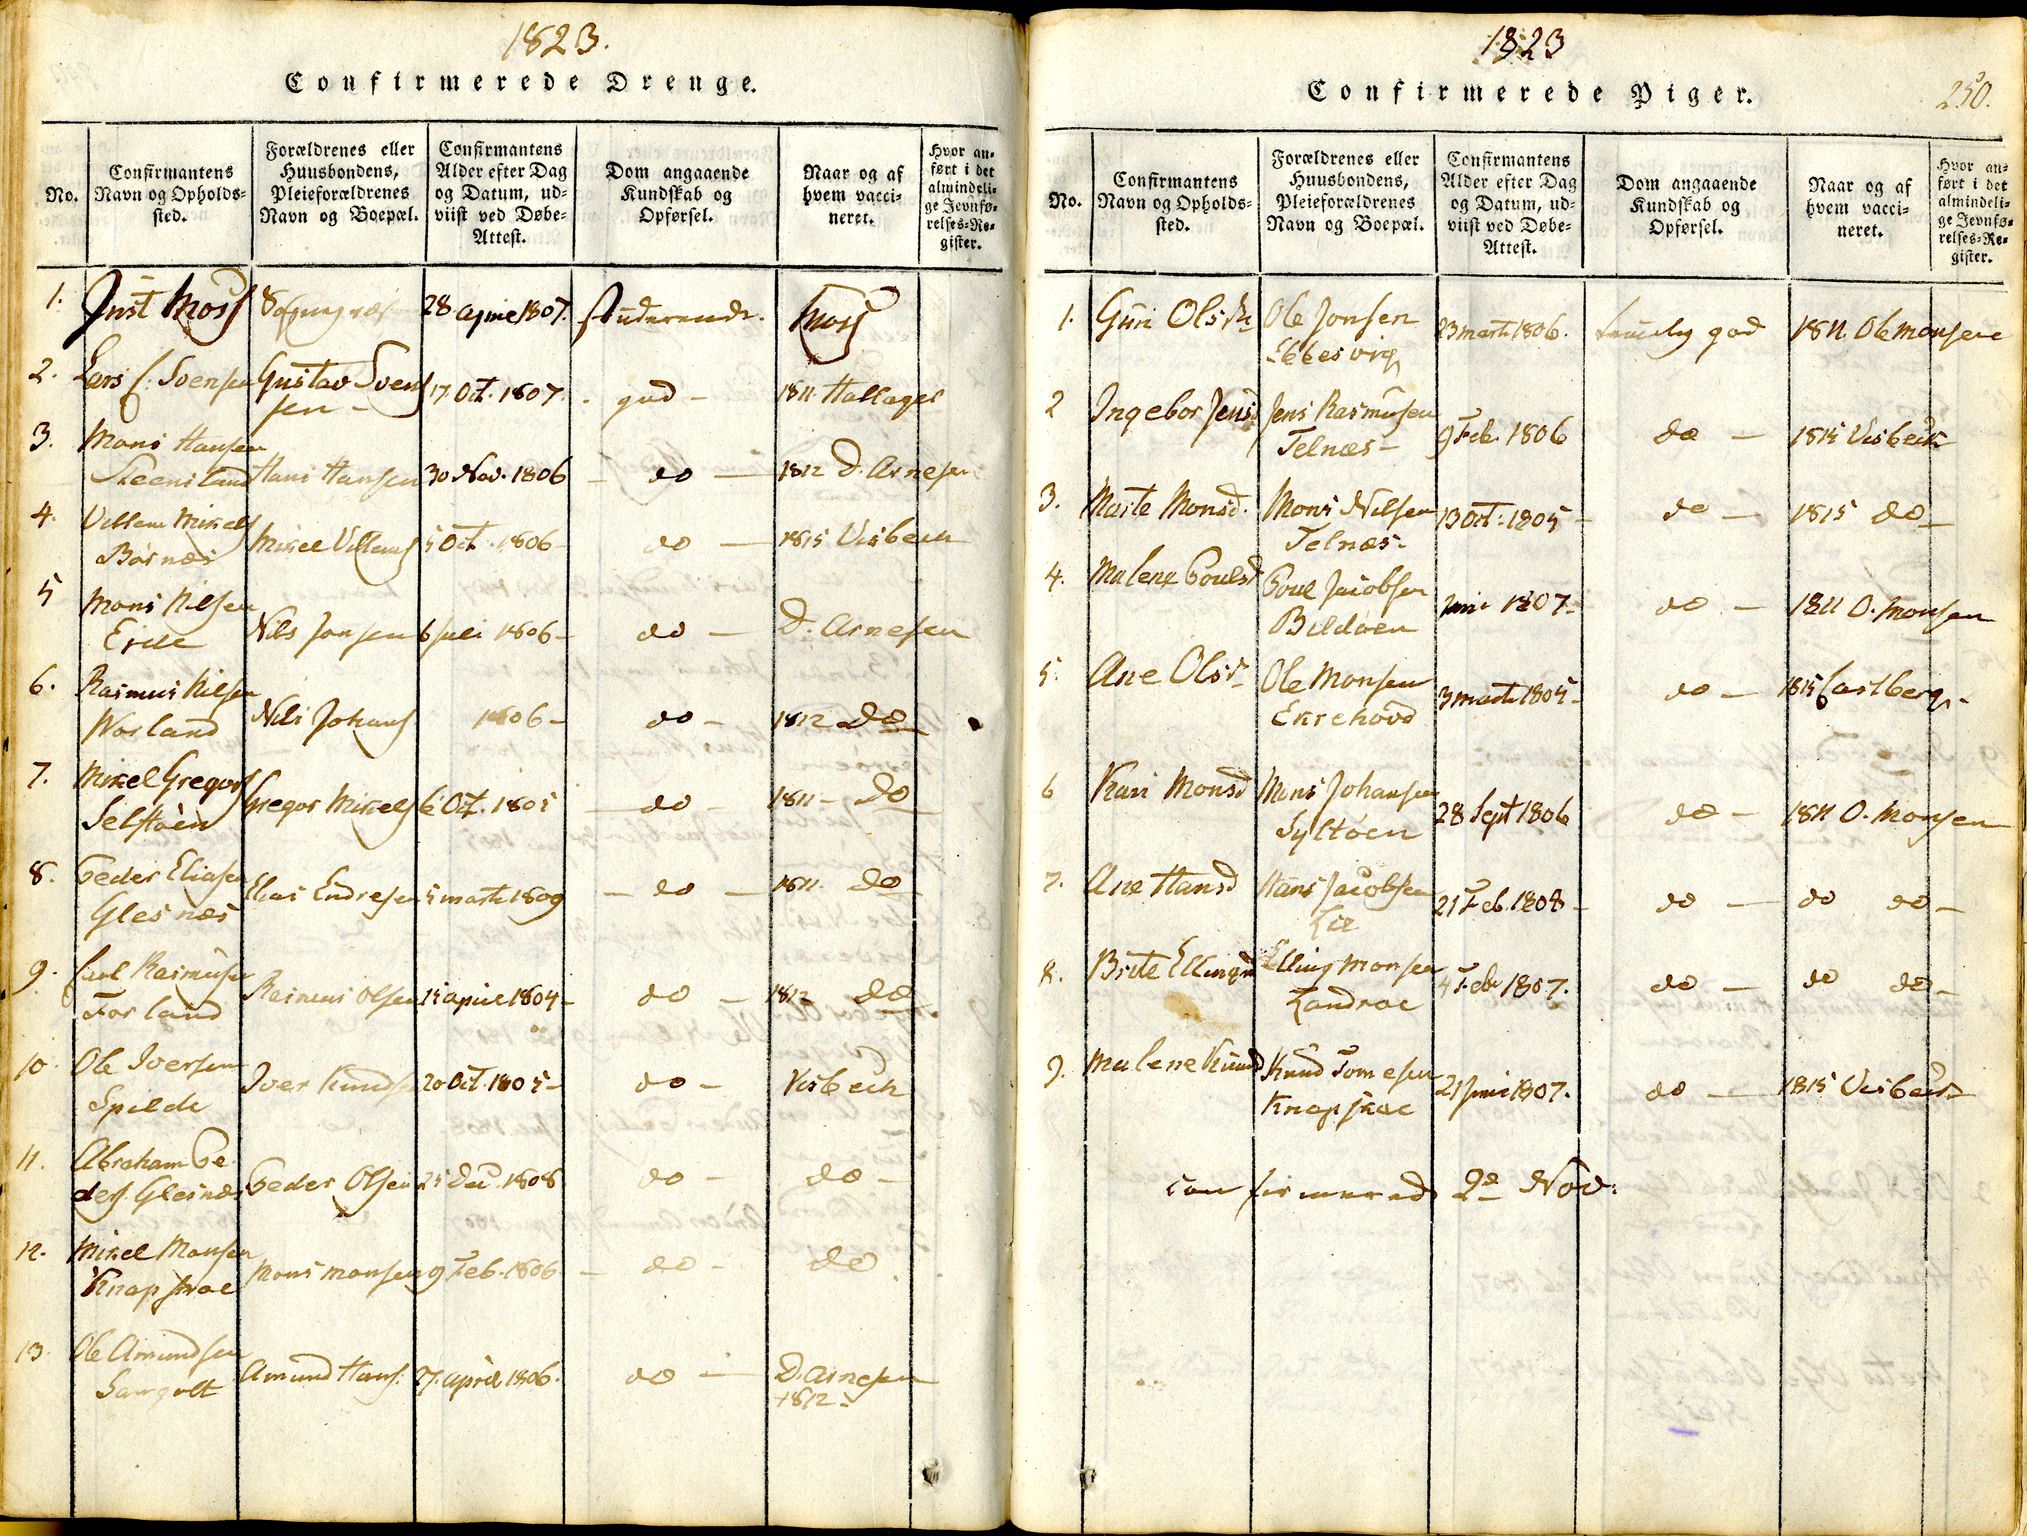 1823.
Confirmerede Drenge.
No.
Confirmantens
Navn og Opholds-
sted.
Forældrenes eller
Huusbondens,
Pleieforældrenes
Navn og Boepæl.
Confirmantens
Alder efter Dag
og Datum, ud-
viist ved Døbe-
Attest.
Dom angaaende
Kundskab og
Opførsel.
Naar og af
hvem vacci-
neret.
Hvor an-
ført i det
almindeli-
ge Jevnfø-
relses-Re-
gister.
1. Just Moss 28 April 1807. studerende. Moss
2. Lars C. Svensen Gustav Svend
sen - 17 Oct. 1807. - god - 1811. Hallager
3. Mons Hansen
Steensland Hans Hansen 30 Nov. 1806 - do - 1812 D. Arnesen
4. Villem Mikels
Børnæs Mikel Villems 5 Oct. 1806 - do - 1815 Visbech
5 Mons Nilsen
Eide Nils Jonsen 6 Juli 1806 - do - D. Arnesen
6. Rasmus Nilsen
Worland Nils Johans 1806 - do - 1812 do
7. Mikel Gregors
Selstøen Gregor Mikels 6 Oct. 1805 - do - 1811 - do
8. Peder Eliasen
Glesnæs Elias Endresen 5 marti 1809 - do - 1811. do
9. Carl Rasmusen
Forland Rasmus Olsen 15 April 1804 - do - 1812 do
10. Ole Iversen
Spilde Iver Knuds 20 Oct. 1805 - do - Visbech
11. Abraham Pe
ders. Glesnæs Peder Olsen 25 Dec. 1808 do - do -
12. Mikel Monsen
Knapskoe Mons Monsen 9 Feb. 1806 - do - do
13. Ole Amundsen
Sangolt Amund Hans. 27. April 1806. do - D. Arnesen
1812.
1823
250.
Confirmerede Piger.
No.
Confirmantens
Navn og Opholds-
sted.
Forældrenes eller
Huusbondens,
Pleieforældrenes
Navn og Boepæl.
Confirmantens
Alder efter Dag
og Datum, ud-
viist ved Døbe-
Attest.
Dom angaaende
Kundskab og
Opførsel.
Naar og af
hvem vacci-
neret.
Hvor an-
ført i det
almindeli-
ge Jevnfø-
relses-Re-
gister.
1. Guri Olsd. Ole Jonsen
Ebbesvig 23 marti 1806. god 1811. Ole Monsen
2 Ingebor Jensd Jens Rasmusen
Telnæs - 9 Feb. 1806 do - 1815 Visbech
3. Marte Monsd. Mons Nilsen
Telnæs - 13 Oct. 1805 - do - 1815 do -
4. Malene Poulsd Poul Jacobsen
Bildøen Juni 1807 - do - 1811 O. Monsen
5. Ane Olsd. Ole Monsen
Ekrehovd 3 marti 1805 - do - 1815 Castberg.
6 Kari Monsd Mons Johansen
Syltøen 28 Sept 1806 do - 1811 O. Monsen
7. Ane Hansd Hans Jacobsen
Lie 21 Feb. 1808 - do - do do -
8. Brite Ellingsd Elling Monsen
Landroe 4 Feb 1807. do - do do -
9. Malene Knudsd Knud Tomesen
Knapskoe 21 Juni 1807. do - 1815 Visbech
confirmerede 2de Nov: